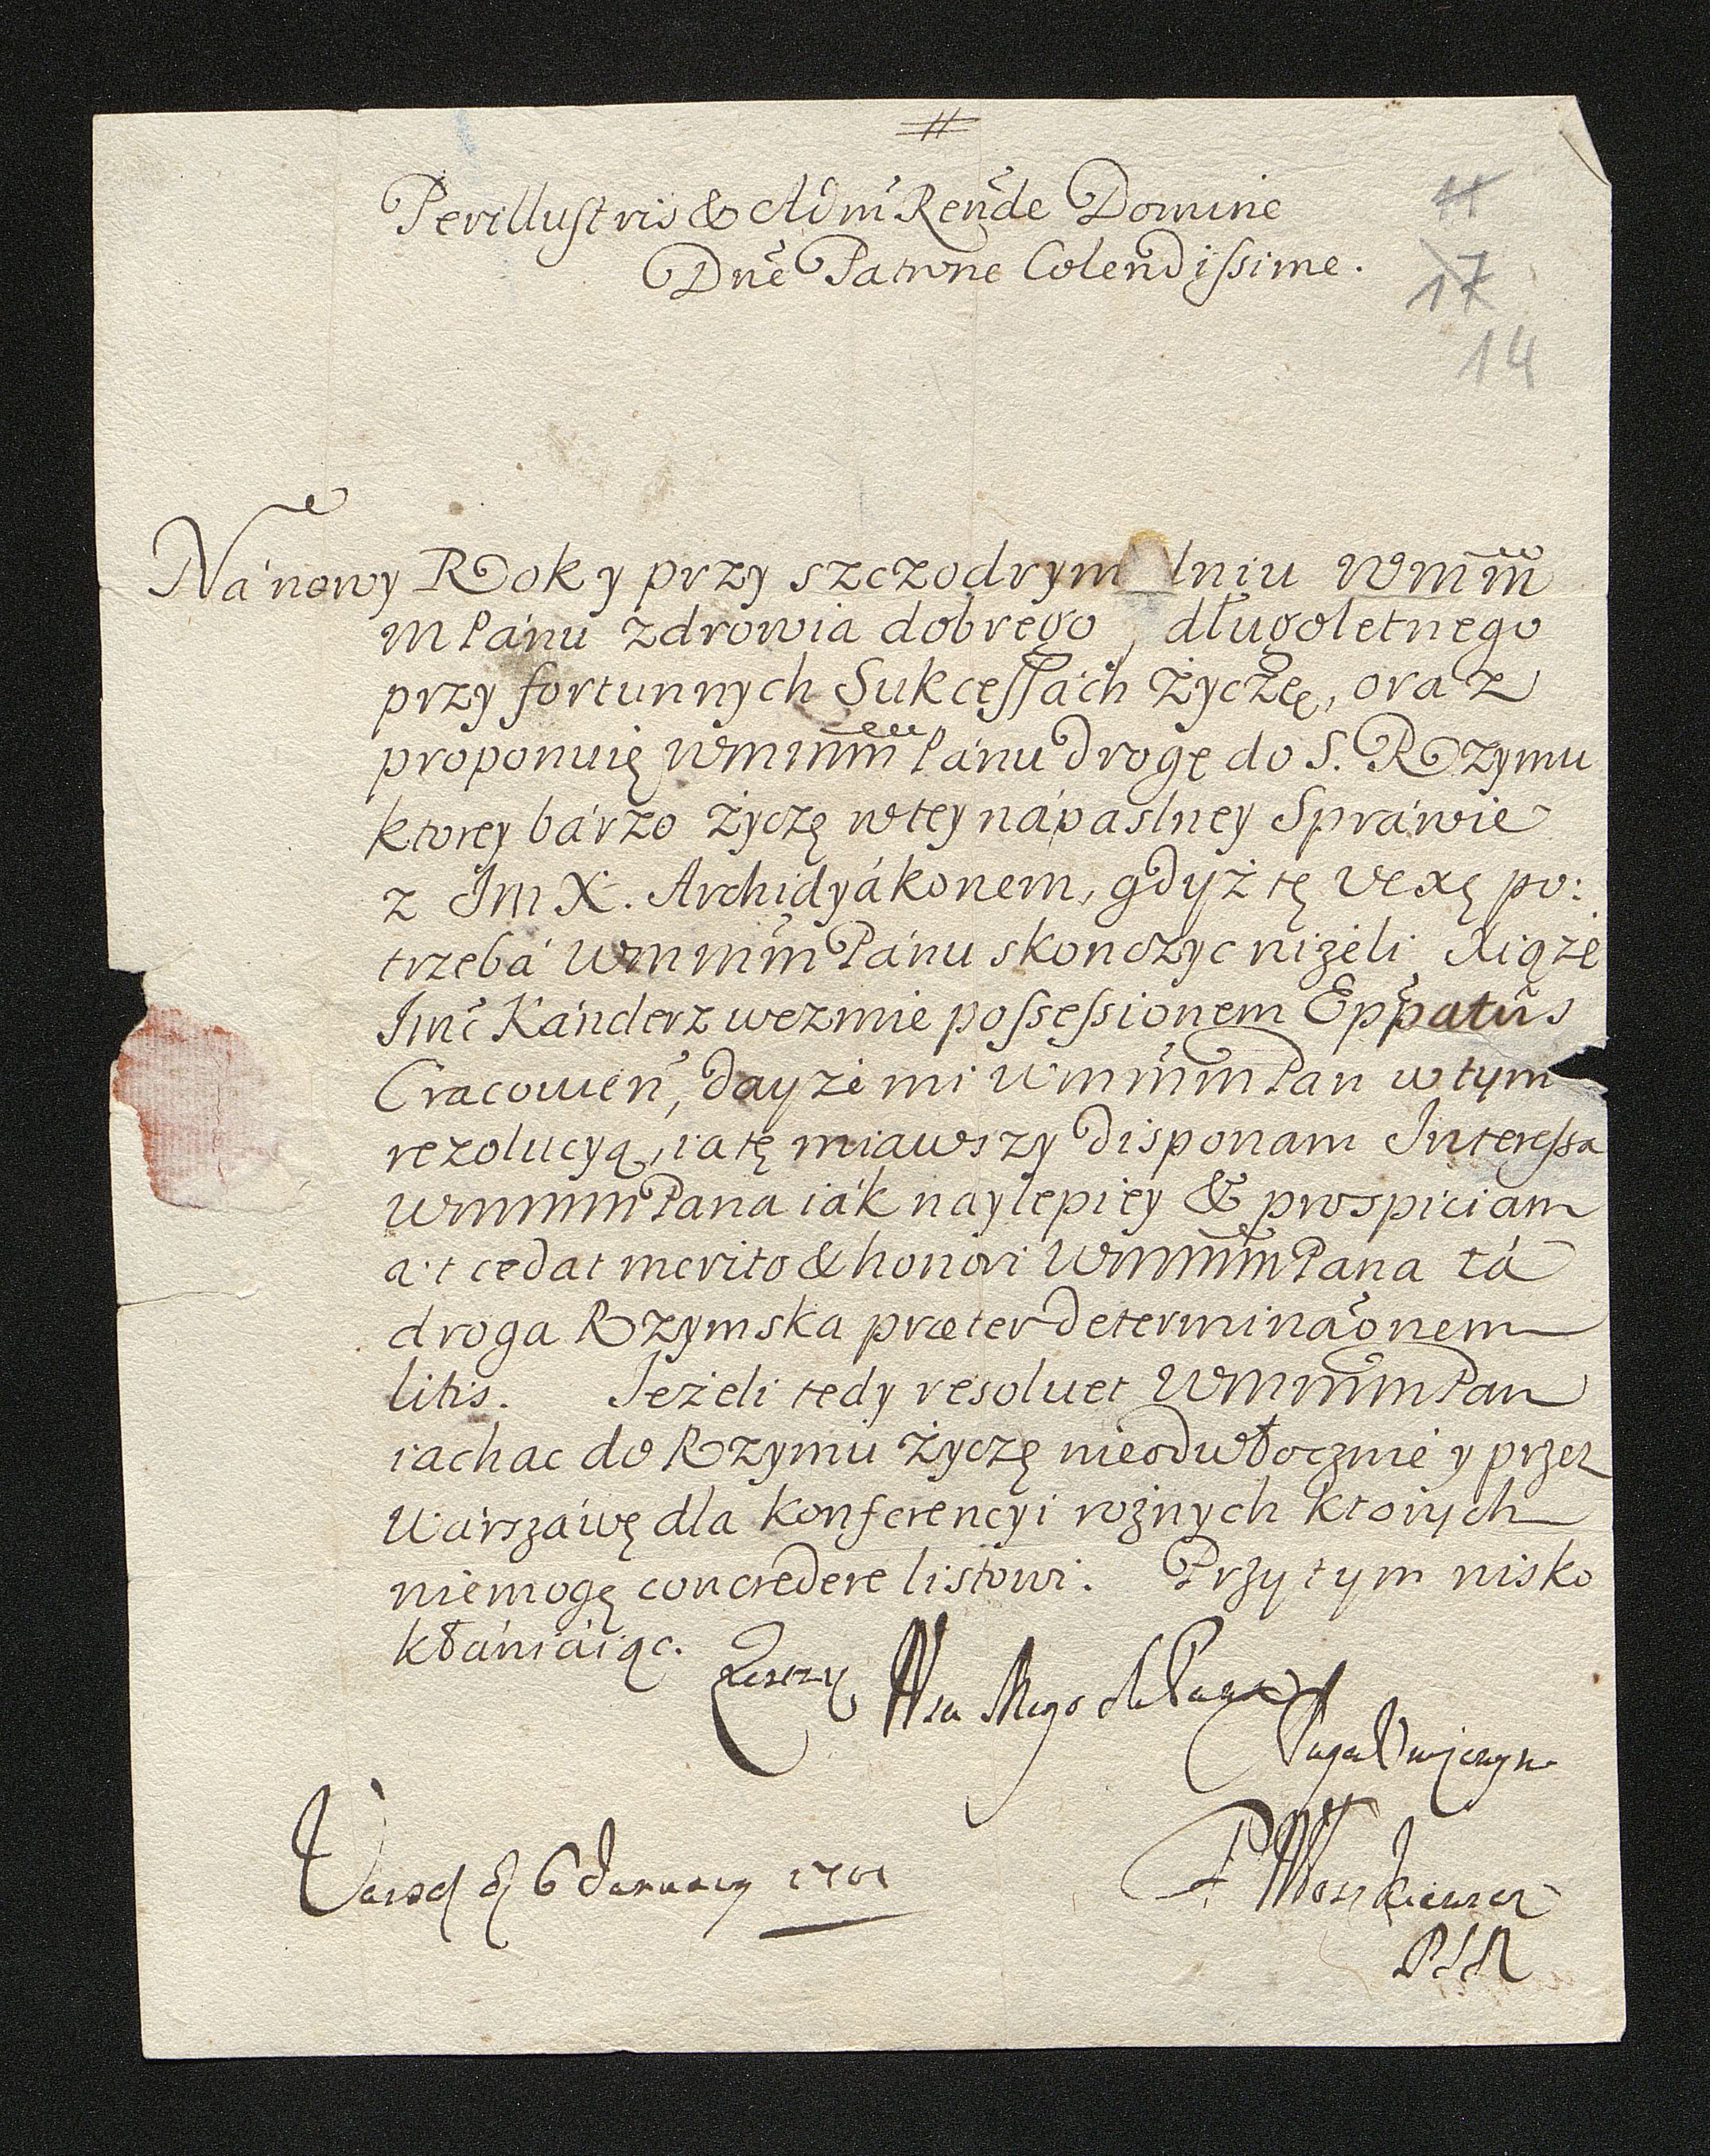 #
Perillustris & Adm̃ Rend̃e Domine
Dnẽ Patrone Colendissime.
11
17
14
Ná nowy Rok y przy szczodrym dniu Wmm̃
m Pánu zdrowia dobrego, długoletnego
przy fortunnych Sukcessách życzę, oraz
proponuię Wmmm̃ Pánu drogę do S. Rzymu
ktorey bárzo życzę w tey nápasney Spráwie
z Jm X. Archidyákonem, gdyż tę vexę po:
trzebá Wmmm̃ Pánu skonczyc niżeli Xiąże
Jmć Kánclerz wezmie possessionem Epp̃atûs
Cracovień, day że mi Wmmm̃ Pan w tym
rezolucyą, ia tę miawszy disponam Interessa
Wmmm Pana iák naylepiey & prospiciam
a·t cedat merito & honori Wmmm̃ Pana tá
droga Rzymska præter determinaõnem
litis. Jeżeli tedy resoluet Wmmm̃ Pan
iachac do Rzymu życzę nieodwłocznie y przez
Warszáwę dla konferencyi rożnych ktorych
niemogę concredere listowi. Przy tym nisko
kłániáiąc.
Wsu Mego Pana
6 January 1701